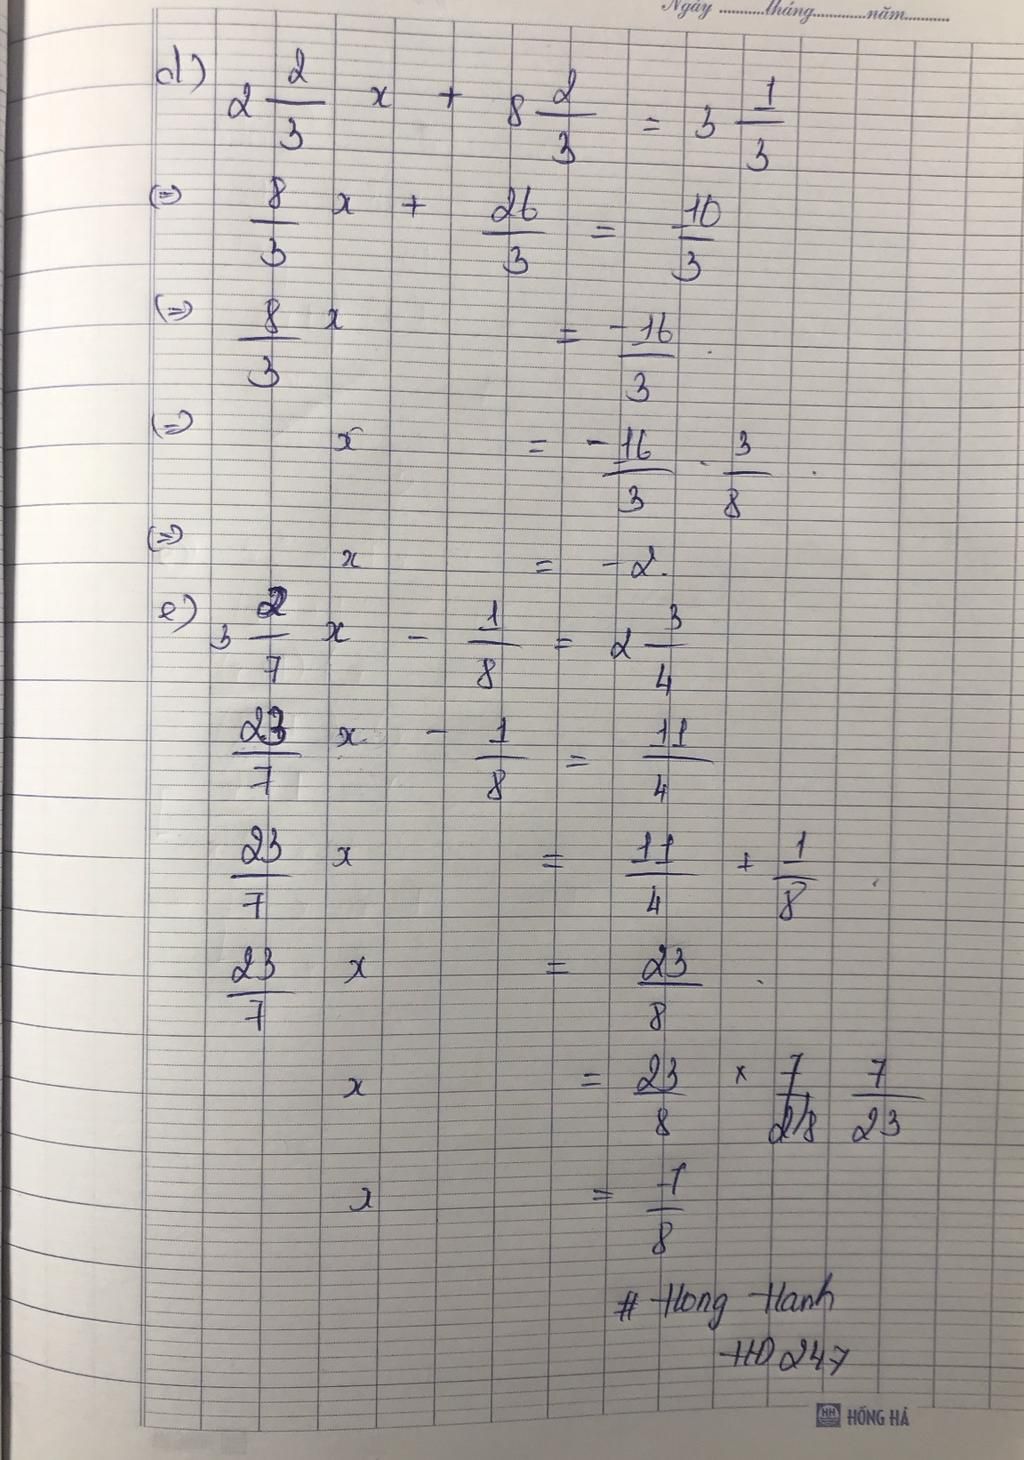 Ngày ..........tháng............năm...........
d) 2 2/3 x + 8 2/3 = 3 1/3
(=) 8/3 x + 26/3 = 10/3
(=) 8/3 x = -16/3
(=) x = -16/3 . 3/8
(=) x = -2.
e) 3 2/7 x - 1/8 = 2 3/4
23/7 x - 1/8 = 11/4
23/7 x = 11/4 + 1/8
23/7 x = 23/8
x = 23/8 × 7/28 7/23
x = 7/8
# Hong Hanh
HD 247
HH HỒNG HÀ